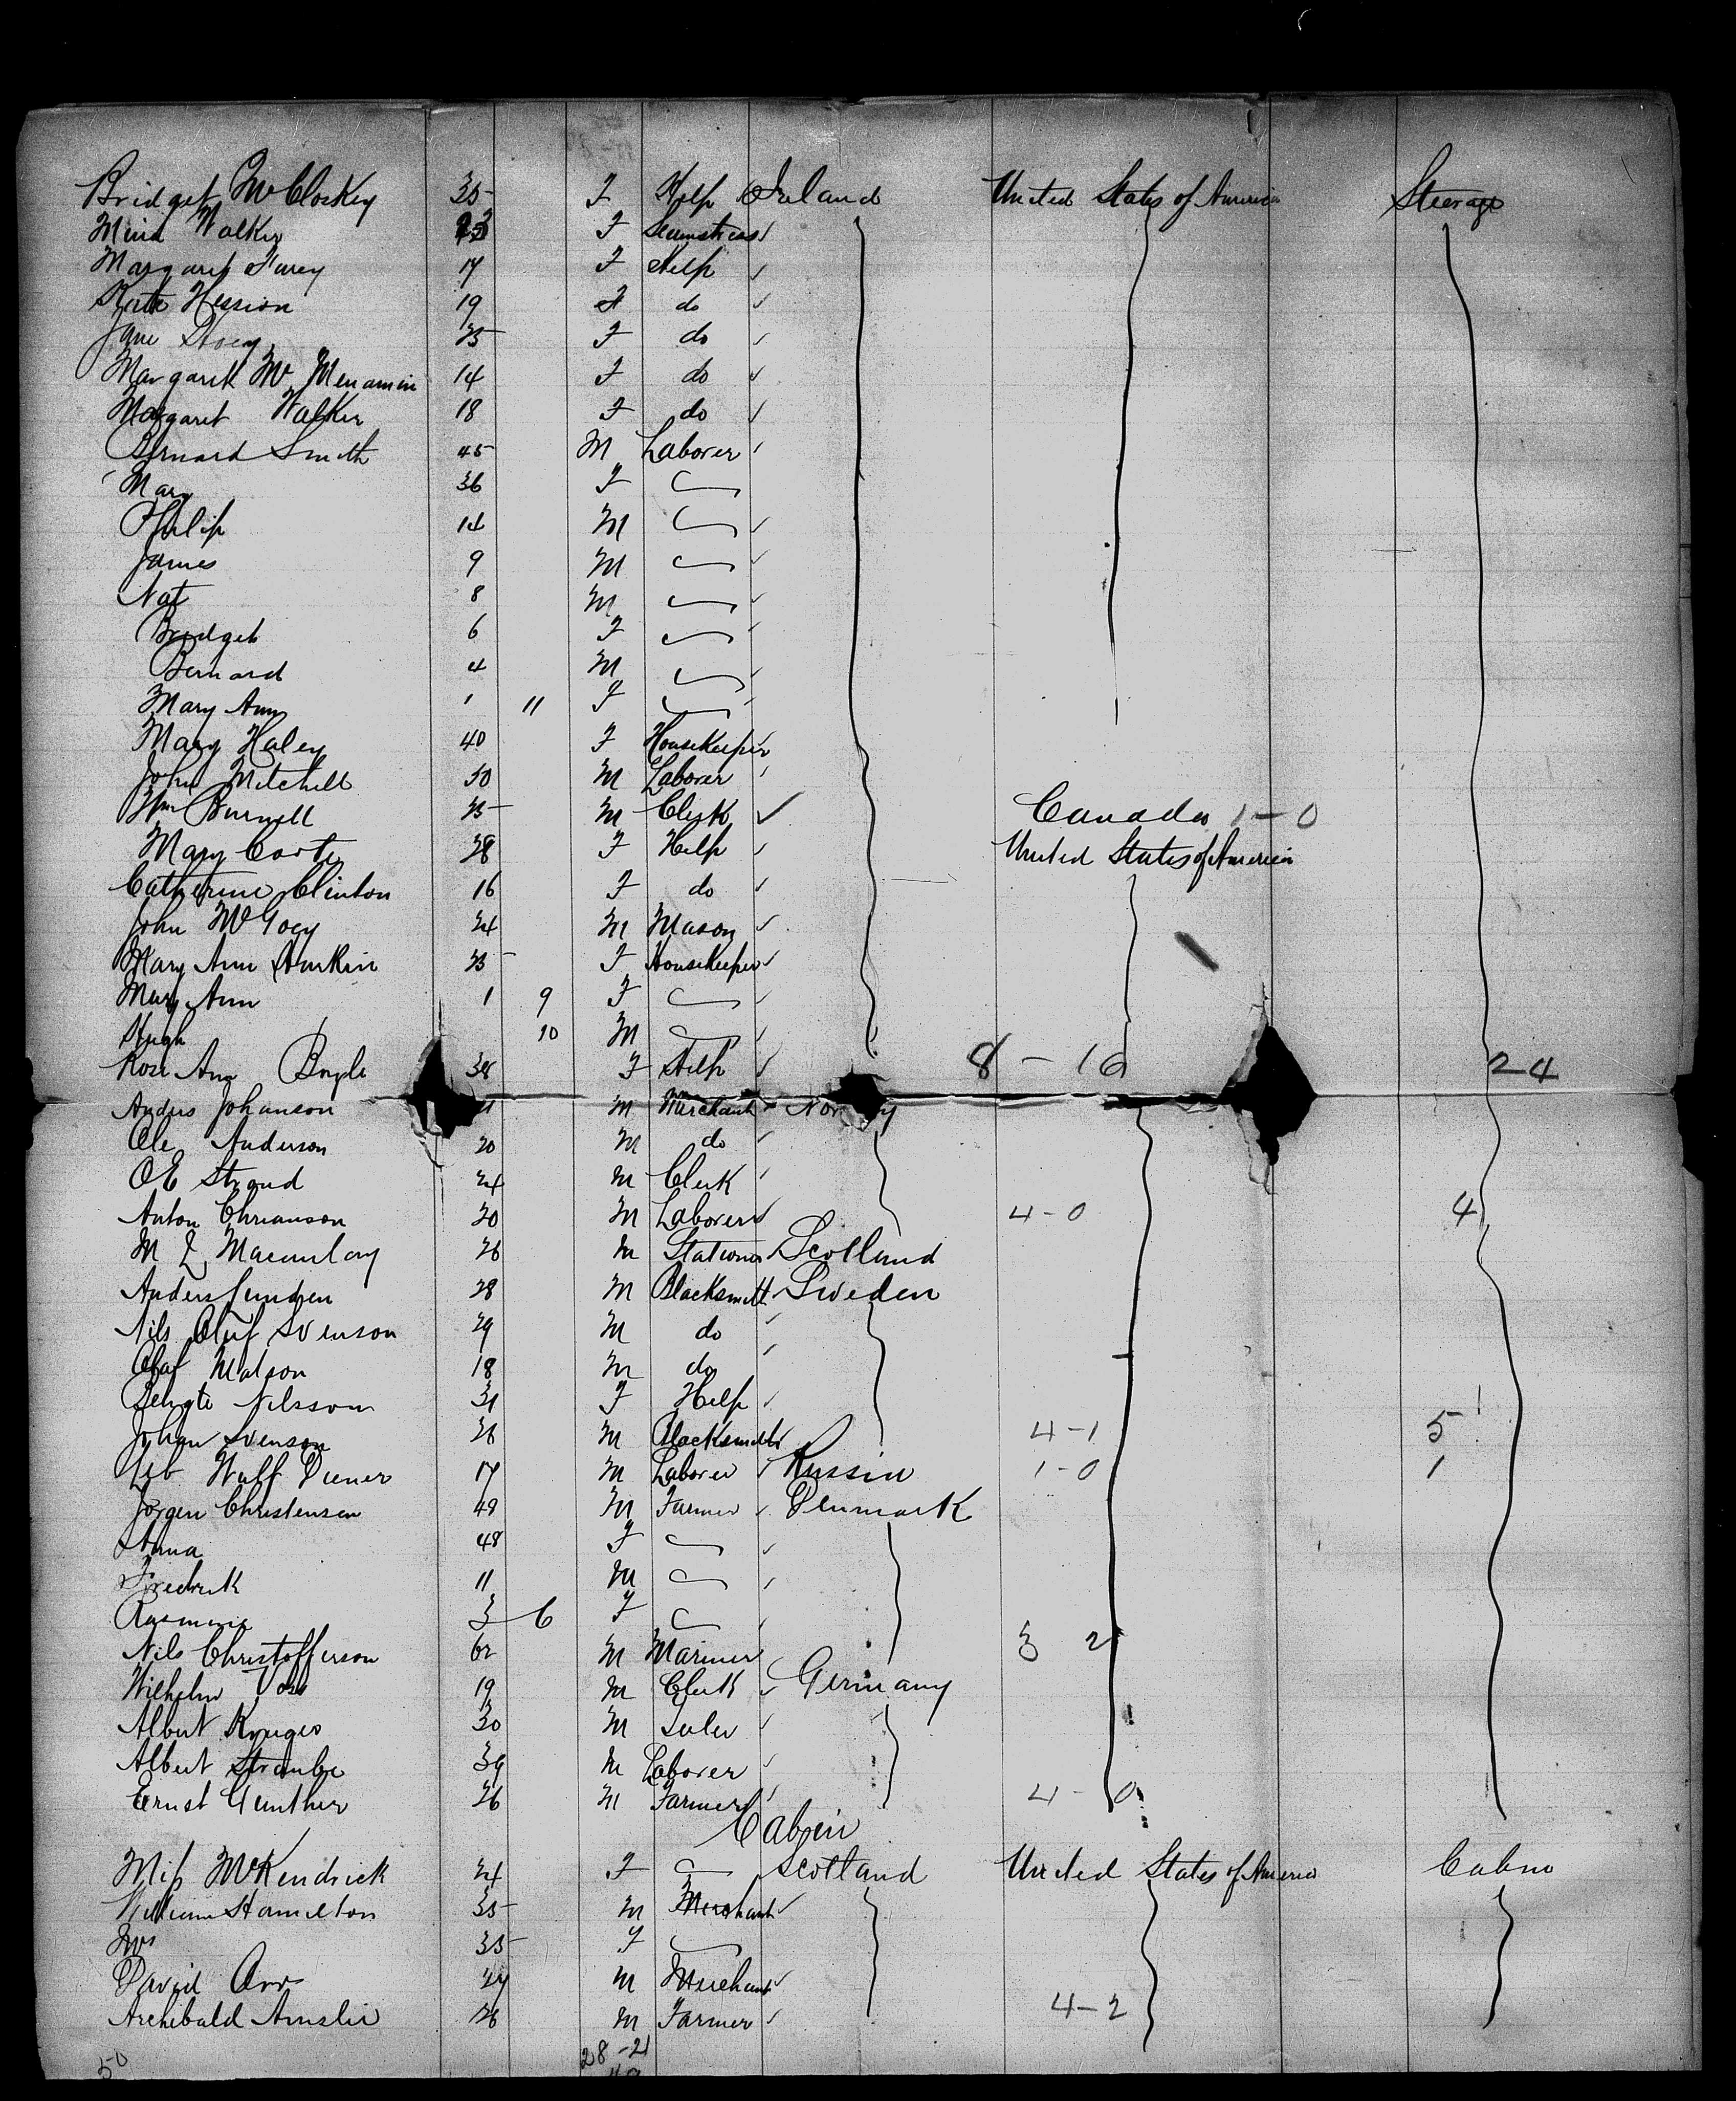 Bridget McCloskey 35 F Help Ireland United States of America Steerage
Walker 23 F Seamstress
Margaret 17 F Help
Kate Hession 19 F do
Jane 25 F do
Margaret McMenamin 14 F do
Margaret Walker 18 F do
Bernard Smith 45 M Laborer
Mary 36 F
Philip 14 M
James 9 M
Nat 8 M
Bridget 6 F
Bernard 4 M
Mary Ann 1 11 F
Mary Haley 40 F Housekeeper
John Mitchell 50 M Laborer
Wm Burnell 25 M Clerk Canada 1-0
Mary 28 F Help United States of America
Catherine Clinton 16 F do
John 24 M Mason
Mary Ann 25 F Housekeeper
Mary Ann 1 9 F
Hugh 10 M
Rose Ann Boyle 38 F Help 8-16 24
Anders Johanson M Merchant
Ole Anderson 20 M do
O E Strand 24 M Clerk
Anton 20 M Laborer 4-0 4
M 26 M Scotland
Anders 28 M Blacksmith Sweden
Nils Oluf Svenson 29 M do
Olaf Matson 18 M do
Nilsson 31 F Help
Johan Svenson 26 M Blacksmith 4-1 5
Wulf 17 M Laborer Russia 1-0 1
Jorgen Christensen 49 M Farmer Denmark
Anna 48 F
Fredrick 11 M
3 6 F
Nils Christofferson 62 M Mariner 3 2
Wilhelm Voss 19 M Clerk Germany
Albert 30 M
Albert 39 M Laborer
Ernst Gunther 26 M Farmer 4-0
Cabin
Miss McKendrick 24 F Scotland United States of America Cabin
William Hamilton 35 M Merchant
Mrs 35 F
David Orr M Merchant
Archibald Ainslie 26 M Farmer 4-2
50 28-21